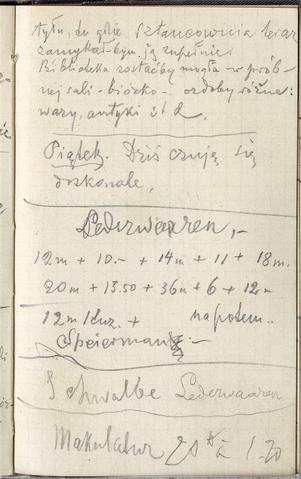 tyłu, do gdzie sztancownia teraz
zamykałbym ją zupełnie.
Biblioteka zostaćby mogła w prób-
nej sali - biórko - ozdoby różne:
wazy, antyki i t d.
Piątek. Dziś czuję się
doskonale.
Lederwaaren,-
12m + 10.- + 14m + 11 + 18m.
20m + 13.50 + 36m + 6 + 12m
12m + na potem..
Speierman :-
Schwalbe Lederwaaren
Makulatur à 1.20